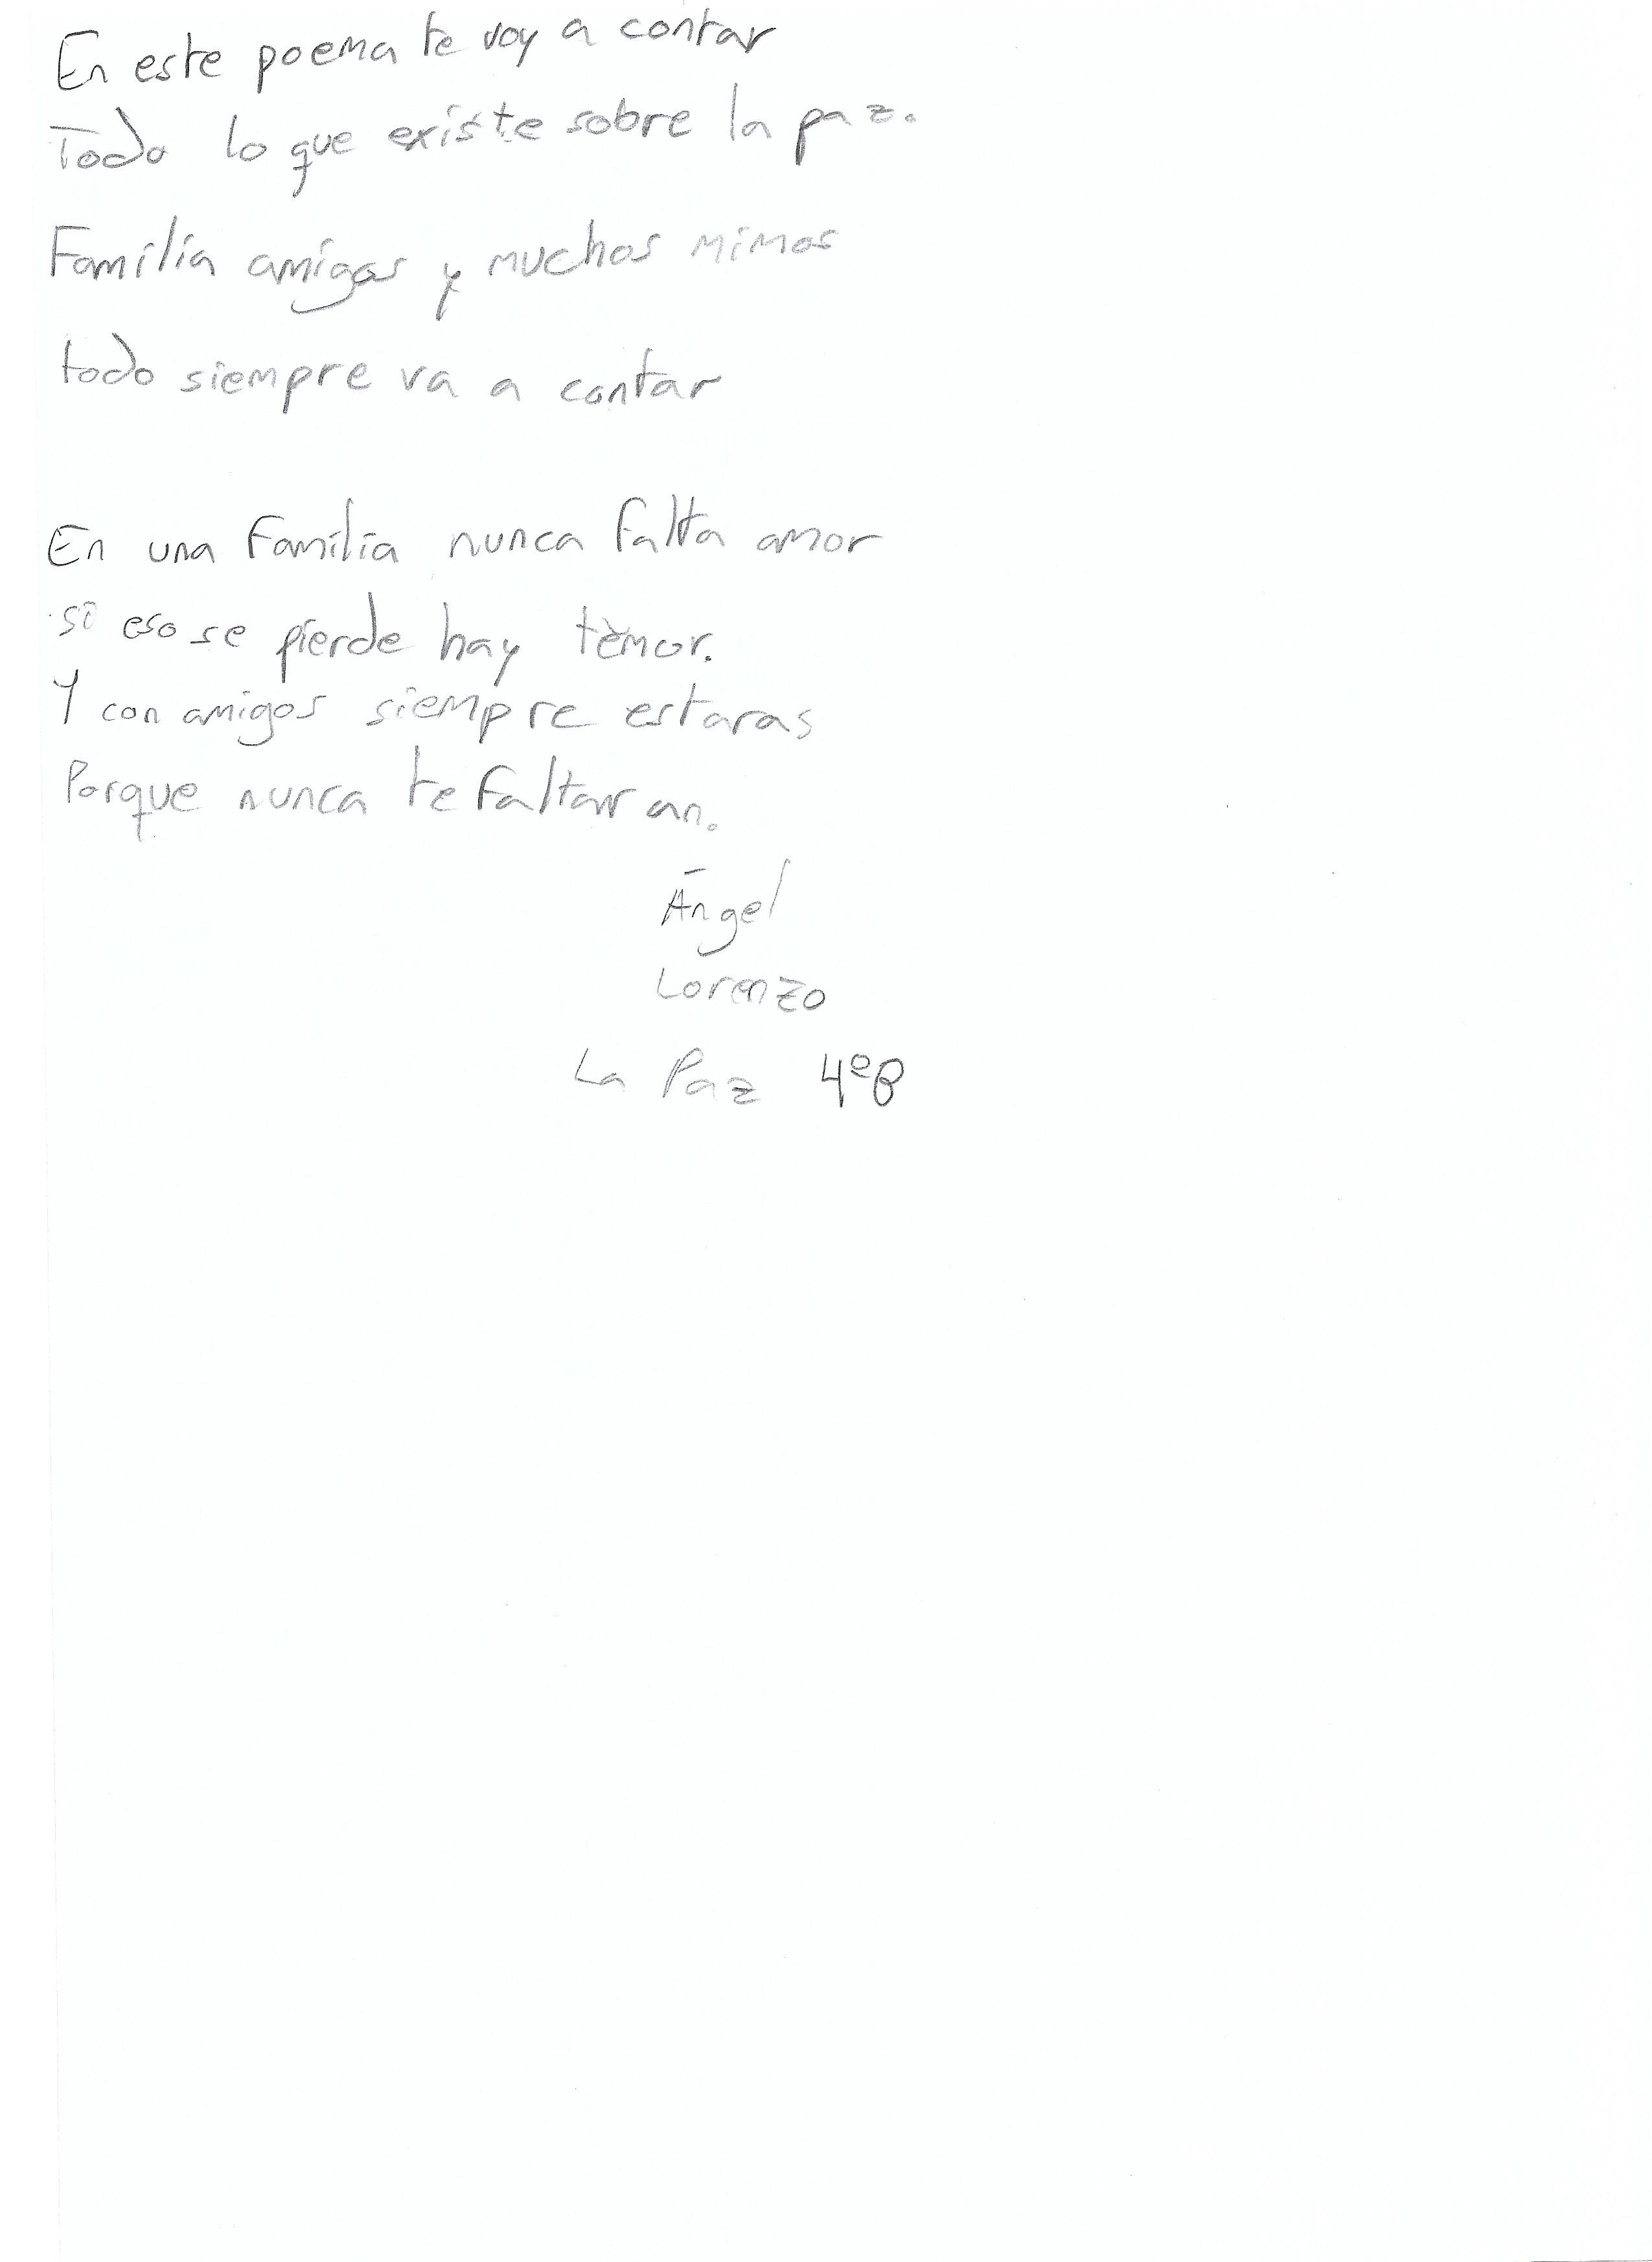 En este poema te voy a contar
Todo lo que existe sobre la paz.
Familia amigos y muchos mimos
todo siempre va a contar
En una familia nunca falta amor
si eso se pierde hay temor.
Y con amigos siempre estaras
Porque nunca te faltaran.
Ángel
Lorenzo
La Paz 4ºB